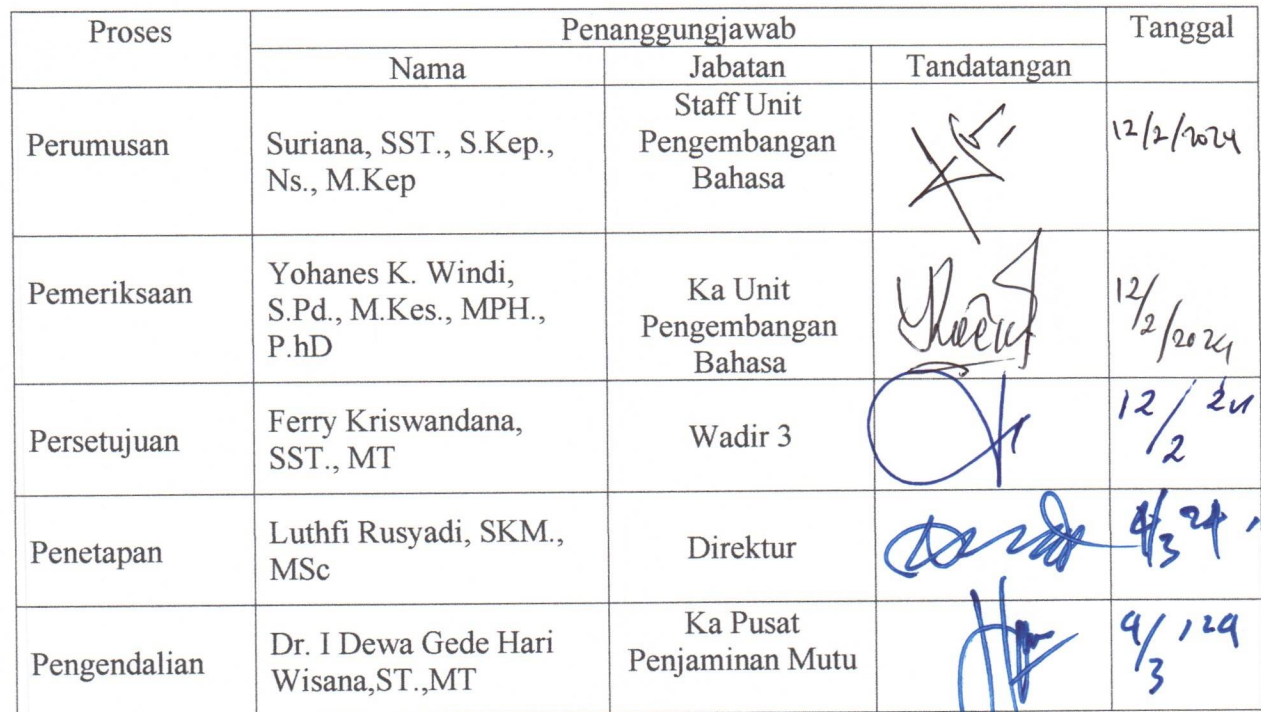 Proses
Penanggungjawab
Tanggal
Nama
Jabatan
Tandatangan
Perumusan
Suriana, SST., S.Kep.,
Ns., M.Kep
Staff Unit
Pengembangan
Bahasa
12/2/2024
Pemeriksaan
Yohanes K. Windi,
S.Pd., M.Kes., MPH.,
P.hD
Ka Unit
Pengembangan
Bahasa
12/2/2024
Persetujuan
Ferry Kriswandana,
SST., MT
Wadir 3
12/2
Penetapan
Luthfi Rusyadi, SKM.,
MSc
Direktur
Pengendalian
Dr. I Dewa Gede Hari
Wisana,ST.,MT
Ka Pusat
Penjaminan Mutu